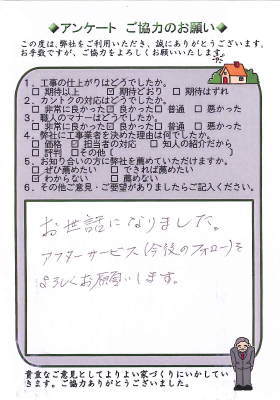 ◆アンケート ご協力のお願い◆
この度は、弊社をご利用いただき、誠にありがとうございます。
お手数ですが、ご協力をよろしくお願いいたします。
1. 工事の仕上がりはどうでしたか。
□ 期待以上 ☑ 期待どおり □ 期待はずれ
2. カントクの対応はどうでしたか。
□ 非常に良かった ☑ 良かった □ 普通 □ 悪かった
3. 職人のマナーはどうでしたか。
□ 非常に良かった ☑ 良かった □ 普通 □ 悪かった
4. 弊社に工事業者を決めた理由は何でしたか。
□ 価格 ☑ 担当者の対応 □ 知人の紹介だから
□ 評判 □ その他（
5. お知り合いの方に弊社を薦めていただけますか。
□ ぜひ薦めたい □ できれば薦めたい
☑ わからない □ 薦めない
6. その他ご意見・ご要望がありましたらご記入ください。
お世話になりました。
アフターサービス(今後のフォロー)を
よろしくお願いします。
貴重なご意見としてよりよい家づくりにいかしてい
きます。ご協力ありがとうございました。